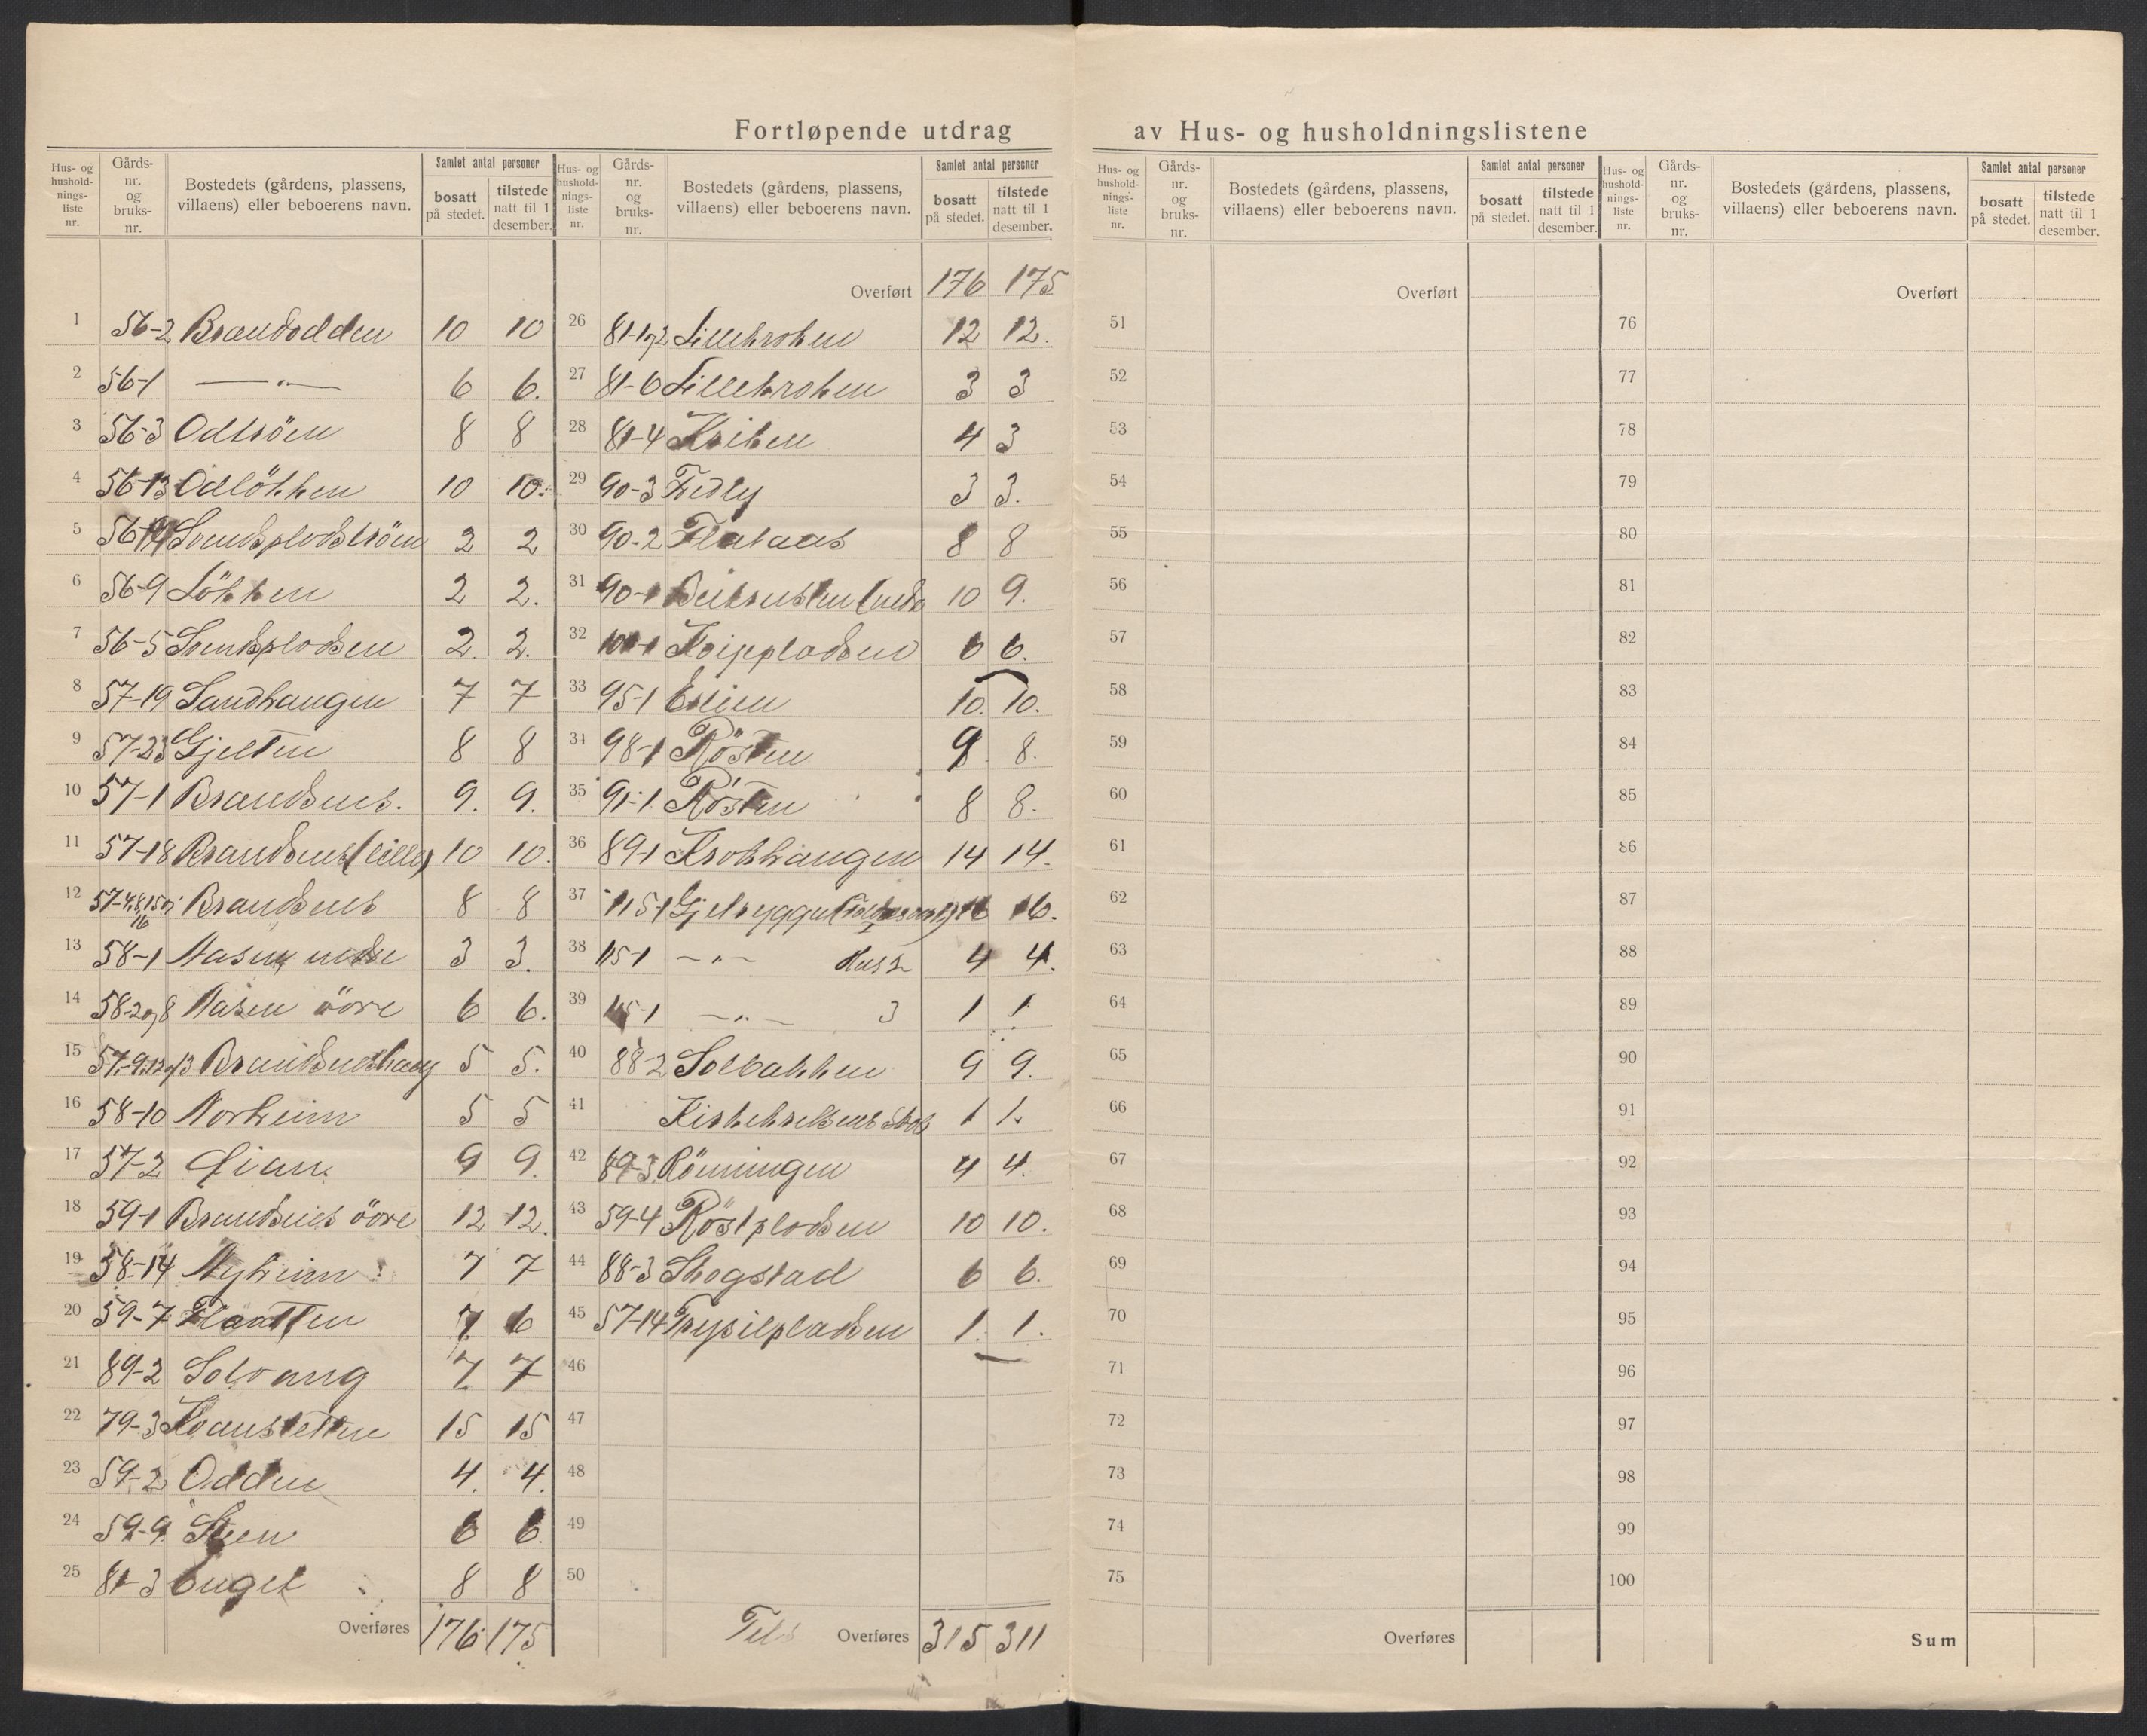 Fortløpende utdrag av Hus- og husholdningslistene
Hus- og hushold-nings-liste nr. Gårds-nr. og bruks-nr. Bostedets (gårdens, plassens, villaens) eller beboerens navn. Samlet antal personer bosatt på stedet. tilstede natt til 1 desember.
1 56-2 Brandodden 10 10
2 56-1 —"— 6 6.
3 56-3 Odtröen 8 8
4 56-13 Odlökken 10 10.
5 56-14 2 2
6 56-9 Lökken 2 2.
7 56-5 Svendsplodsen 2. 2.
8 57-19 Sandhaugen 7 7
9 57-23 Gjelten 8 8
10 57-1 Brandsnes. 9. 9.
11 57-18 Brandsnes (lille) 10 10.
12 57-4,8,15 og 16 Brandsnes 8 8
13 58-1 Aasen nedre 3 3.
14 58-2 og 8 Aasen övre 6 6.
15 57-9,12 og 13 Brandsneshaug 5 5.
16 58-10 Norheim 5 5
17 57-2 Lian. 9 9.
18 59-1 Brandsnes övre 12 12.
19 58-14 Nyheim 7 7
20 59-7 Flaatten 7 6
21 89-2 Solvang 7 7
22 79-3 Kvanstetten 15 15
23 59-2 Odden 4. 4.
24 59-9 Steen 6 6.
25 81-3 Enget 8 8
Overføres 176 175
Hus- og hushold-nings-liste nr. Gårds-nr. og bruks-nr. Bostedets (gårdens, plassens, villaens) eller beboerens navn. Samlet antal personer bosatt på stedet. tilstede natt til 1 desember.
Overført 176 175
26 81-1 og 2 Lillekroken 12 12.
27 81-6 Lillekroken 3 3
28 81-4 Kriken 4 3
29 90-3 Fedly 3 3.
30 90-2 Flataas 8 8
31 90-1 10 9.
32 Kvippladsen 6 6.
33 95-1 Enlien 10. 10.
34 98-1 Rösten 9 8.
35 91-1 Rösten 8 8.
36 89-1 Krokhaugen 14 14.
37 115-1 Gjelryggen 16 16.
38 115-1 —"— Hus 2 4 4.
39 115-1 —"— 3 1 1
40 88-2 Solbakken 9 9.
41 1 1.
42 89-3 Rönningen 4 4.
43 59-4 Röstplodsen 10 10.
44 88-3 Skogstad 6 6.
45 57-14 Trysilpladsen 1. 1.
46
47
48
49
50
Tils Overføres 315 311
Hus- og hushold-nings-liste nr. Gårds-nr. og bruks-nr. Bostedets (gårdens, plassens, villaens) eller beboerens navn. Samlet antal personer bosatt på stedet. tilstede natt til 1 desember.
Overført
51
52
53
54
55
56
57
58
59
60
61
62
63
64
65
66
67
68
69
70
71
72
73
74
75
Overføres
Hus- og hushold-nings-liste nr. Gårds-nr. og bruks-nr. Bostedets (gårdens, plassens, villaens) eller beboerens navn. Samlet antal personer bosatt på stedet. tilstede natt til 1 desember.
Overført
76
77
78
79
80
81
82
83
84
85
86
87
88
89
90
91
92
93
94
95
96
97
98
99
100
Sum